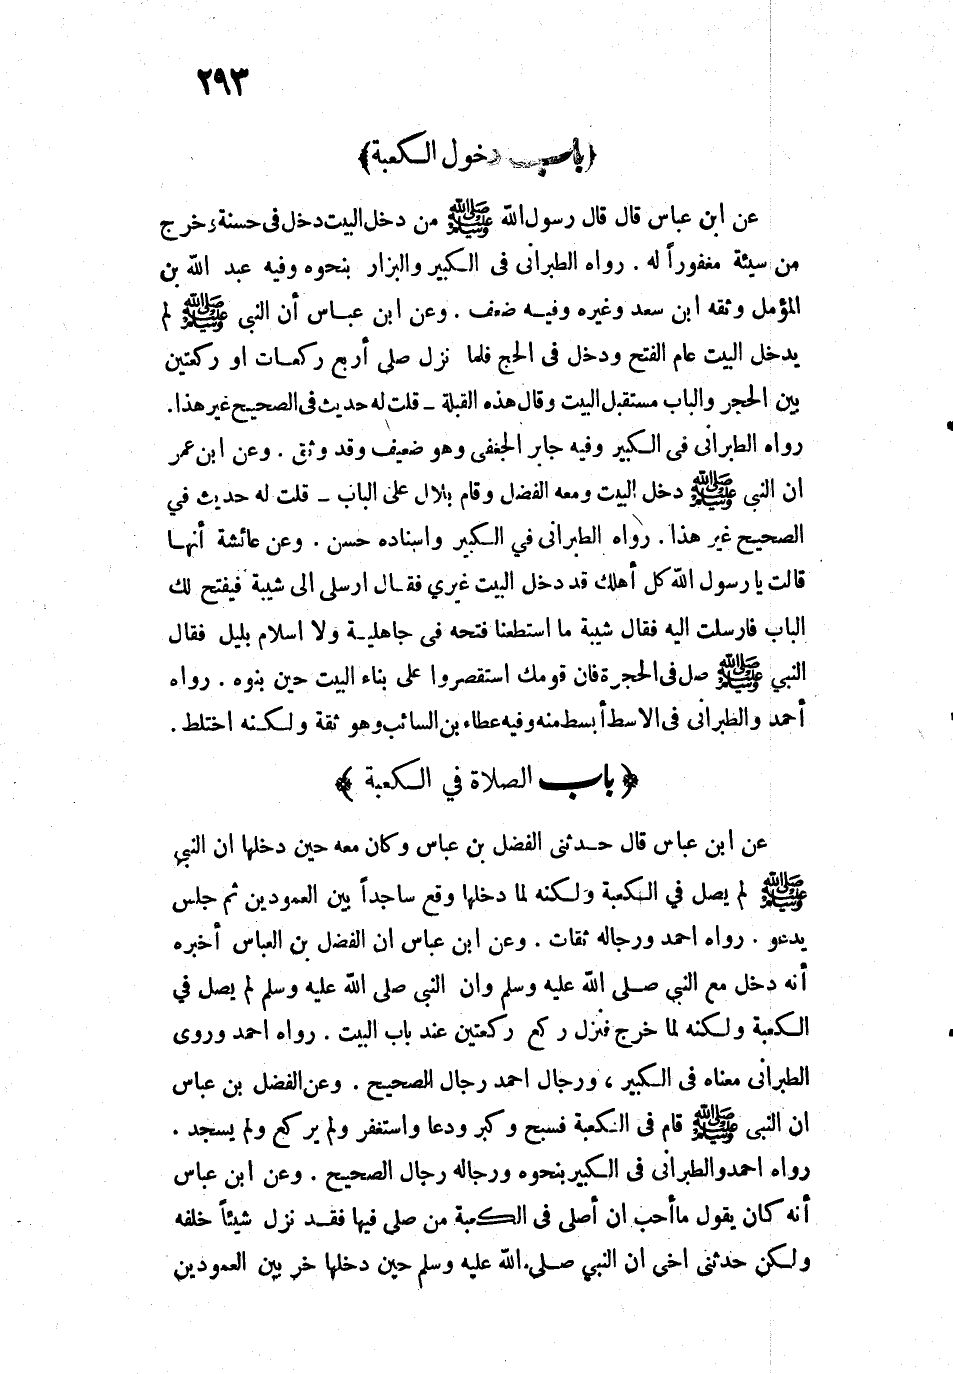 ٢٩٣
﴿باب دخول الكعبة﴾
عن ابن عباس قال قال رسول الله ﷺ من دخل البيت دخل فى حسنة وخرج
من سيئة مغفوراً له . رواه الطبرانى فى الكبير والبزار بنحوه وفيه عبد الله بن
المؤمل وثقه ابن سعد وغيره وفيه ضعف . وعن ابن عباس أن النبى ﷺ لم
يدخل البيت عام الفتح ودخل فى الحج فلما نزل صلى أربع ركعات او ركعتين
بين الحجر والباب مستقبل البيت وقال هذه القبلة ـ قلت له حديث فى الصحيح غير هذا.
رواه الطبرانى فى الكبير وفيه جابر الجعفى وهو ضعيف وقد وثق . وعن ابن عمر
ان النبى ﷺ دخل البيت ومعه الفضل وقام بلال على الباب ـ قلت له حديث في
الصحيح غير هذا . رواه الطبرانى في الكبير واسناده حسن . وعن عائشة أنها
قالت يا رسول الله كل أهلك قد دخل البيت غيري فقال ارسلى الى شيبة فيفتح لك
الباب فارسلت اليه فقال شيبة ما استطعنا فتحه فى جاهلية ولا اسلام بليل فقال
النبي ﷺ صل فى الحجرة فان قومك استقصروا على بناء البيت حين بنوه . رواه
أحمد والطبرانى فى الاسط أبسط منه وفيه عطاء بن السائب وهو ثقة ولكنه اختلط .
﴿باب الصلاة في الكعبة﴾
عن ابن عباس قال حدثنى الفضل بن عباس وكان معه حين دخلها ان النبي
ﷺ لم يصل في الكعبة ولكنه لما دخلها وقع ساجداً بين العمودين ثم جلس
يدعو . رواه احمد ورجاله ثقات . وعن ابن عباس ان الفضل بن العباس أخبره
أنه دخل مع النبي صلى الله عليه وسلم وان النبي صلى الله عليه وسلم لم يصل في
الكعبة ولكنه لما خرج فنزل ركع ركعتين عند باب البيت . رواه احمد وروى
الطبرانى معناه فى الكبير ، ورجال احمد رجال الصحيح . وعن الفضل بن عباس
ان النبى ﷺ قام فى الكعبة فسبح وكبر ودعا واستغفر ولم يركع ولم يسجد .
رواه احمد والطبرانى فى الكبير بنحوه ورجاله رجال الصحيح . وعن ابن عباس
أنه كان يقول ما أحب ان أصلى فى الكعبة من صلى فيها فقد نزل شيئاً خلفه
ولكن حدثنى اخى ان النبي صلى الله عليه وسلم حين دخلها خر بين العمودين